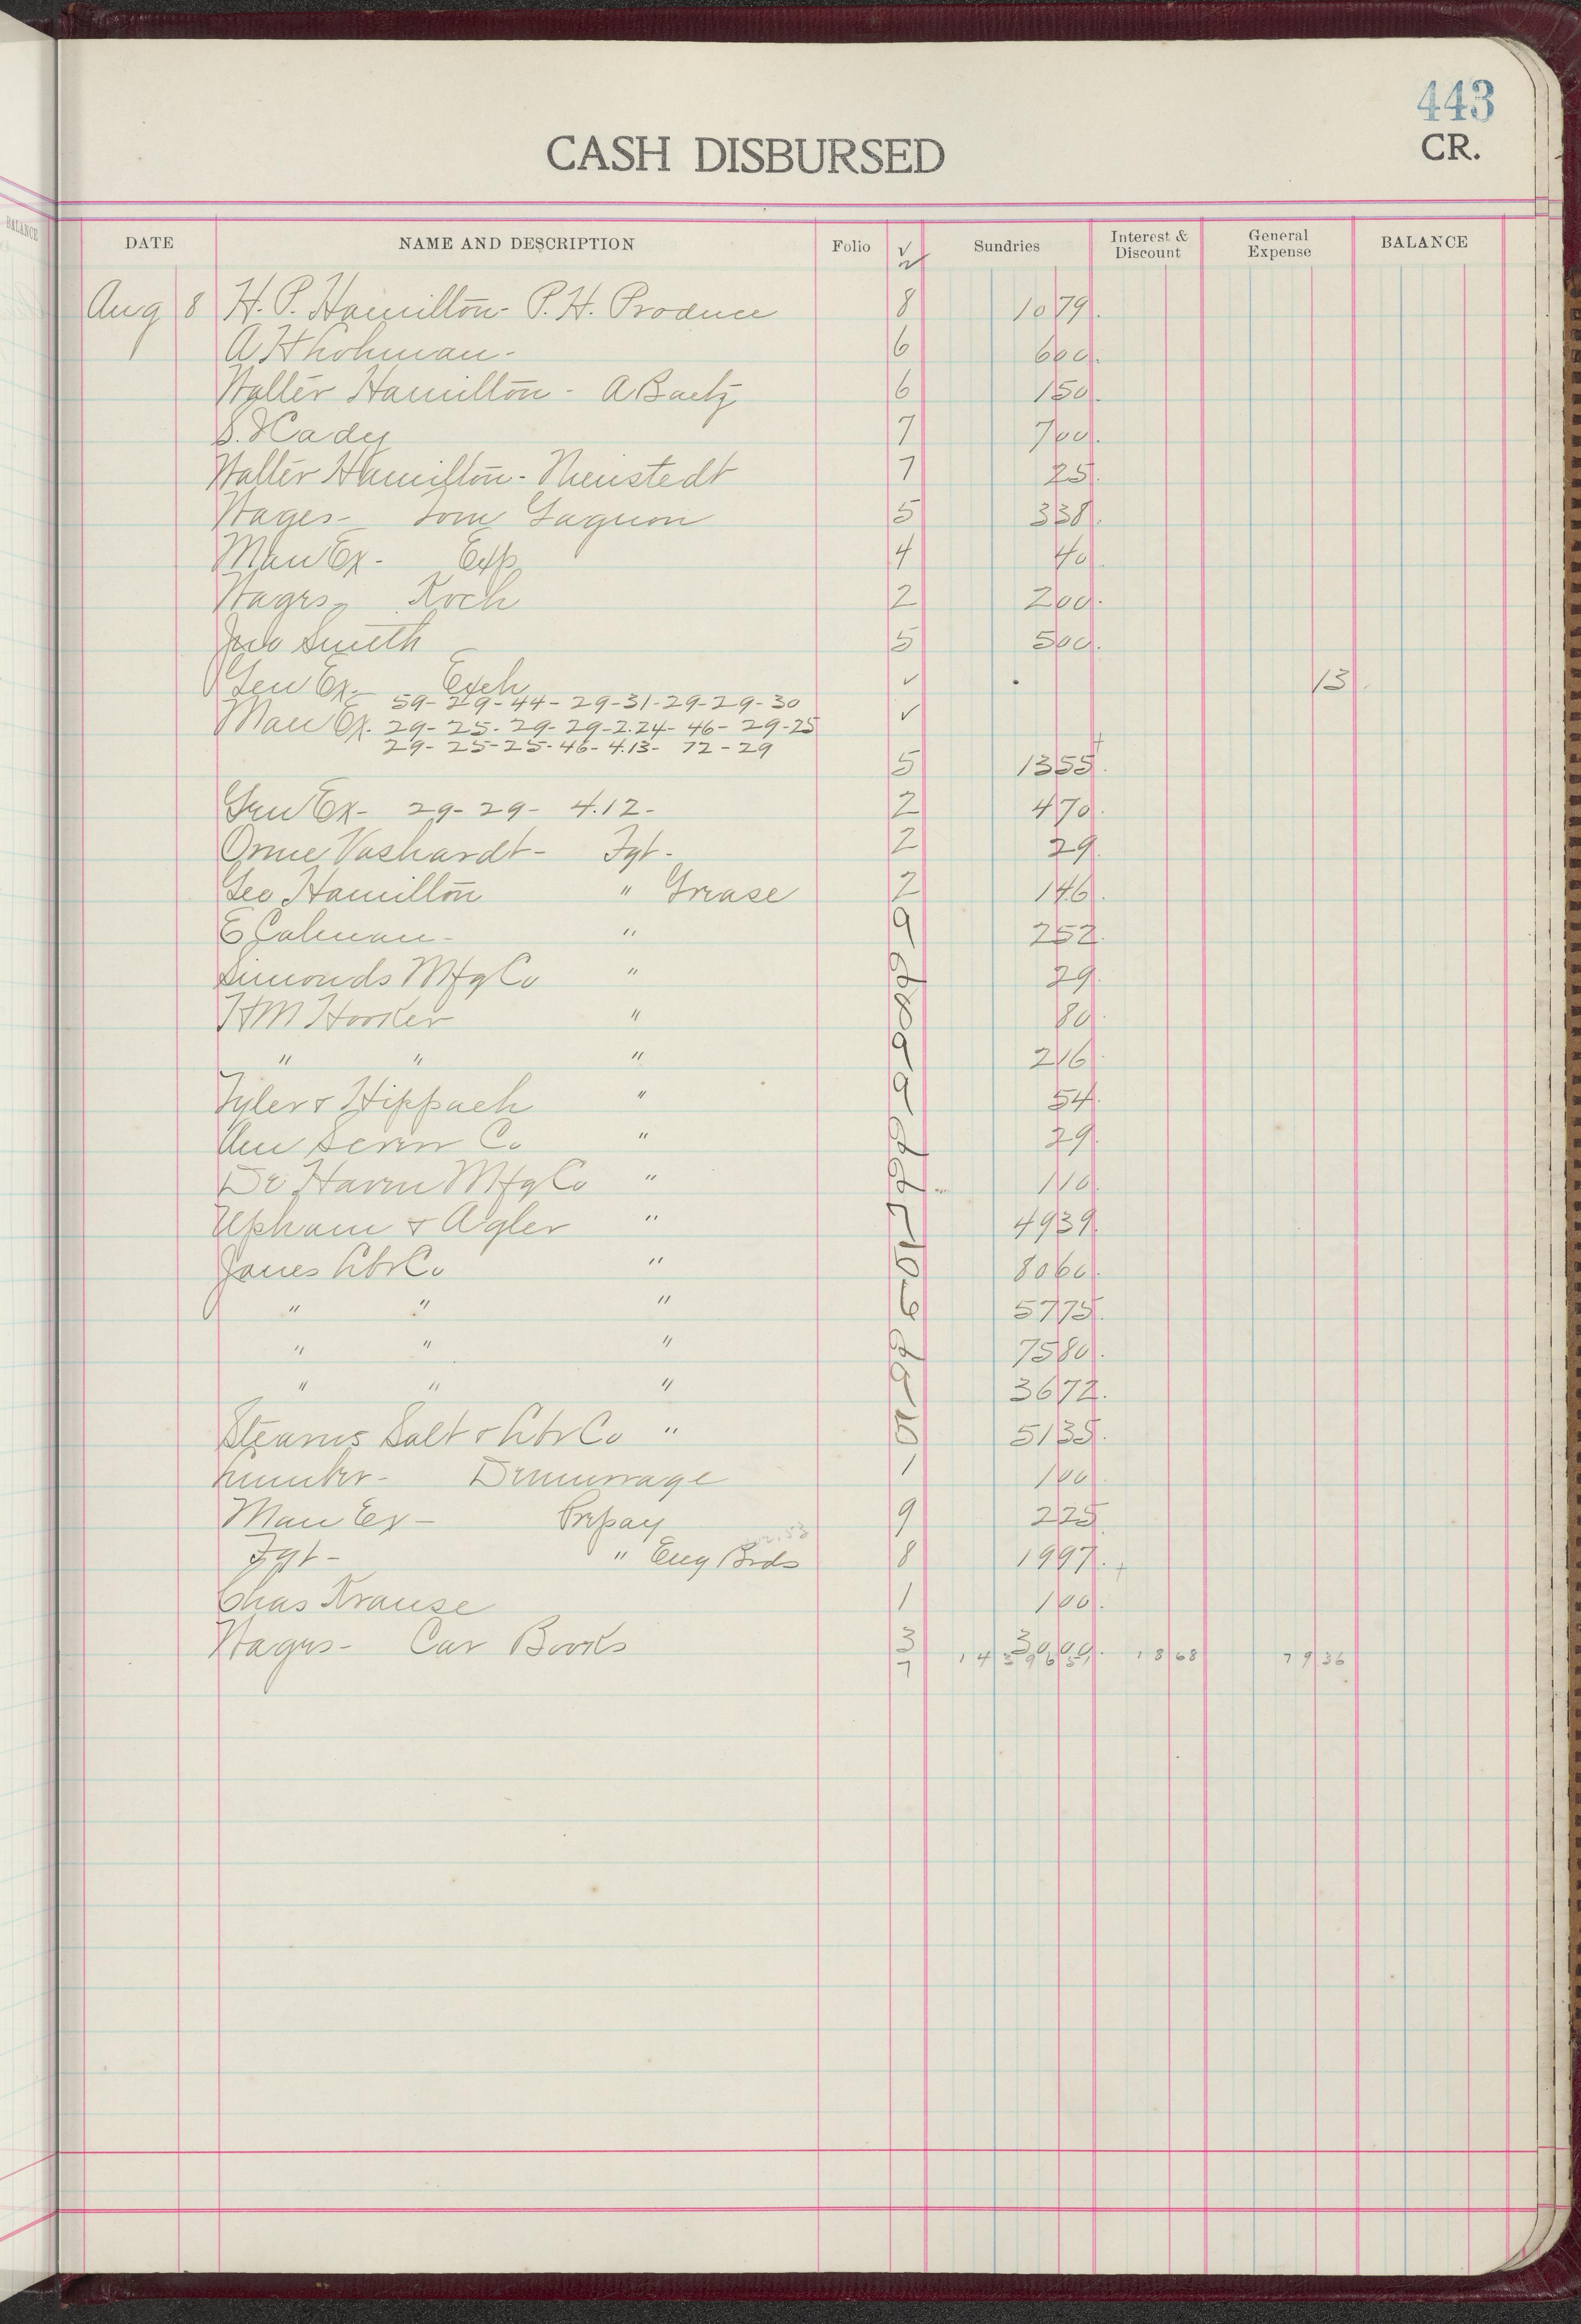 443
CASH DISBURSED
CR.
DATE NAME AND DESCRIPTION Folio √ Sundries Interest & Discount General Expense BALANCE
Aug 8 H. P. Hamilton - P. H. Produce 8 10 79
A H 6 6 00
Walter Hamilton - A 6 1 50
S. Cady 7 7 00
Walter Hamilton - 7 25
Wages - Tom Gagnon 5 3 38
Man Ex - Exp 4 40
Wages - Koch 2 2 00
Jno Smith 5 5 00
Gen Ex - Exch ✓ 13
59 - 29 - 44 - 29 - 31 - 29 - 29 - 30
Man Ex. 29 - 25 - 29 - 29 - 2.24 - 46 - 29 - 25 ✓
29 - 25 - 25 - 46 - 4.13 - 72 - 29
5 13 55
Gen Ex - 29 - 29 - 4.12 - 2 4 70
Orme Vashardt - Fgt - 2 29
Geo Hamilton " Grease 2 1 46
E " 9 2 52
Simonds Mfg Co " 29
H M Hooker " 8 80
" " " 9 2 16
Tyler & Hippach " 9 54
Am Screw Co " 29
De Haven Mfg Co " 1 10
Upham & Agler " 49 39
Jones Lbr Co " 10 80 60
" " " 9 57 75
" " " 75 80
" " " 36 72
Stearns Salt & Lbr Co " 10 51 35
Lumber - Demurrage 1 1 00
Man Ex - Prepay 9 2 25
Fgt - " Eug Brds 8 19 97
Chas Krause 1 1 00
Wages - Car Books 3 30 00
7 14 396 51 18 68 79 36